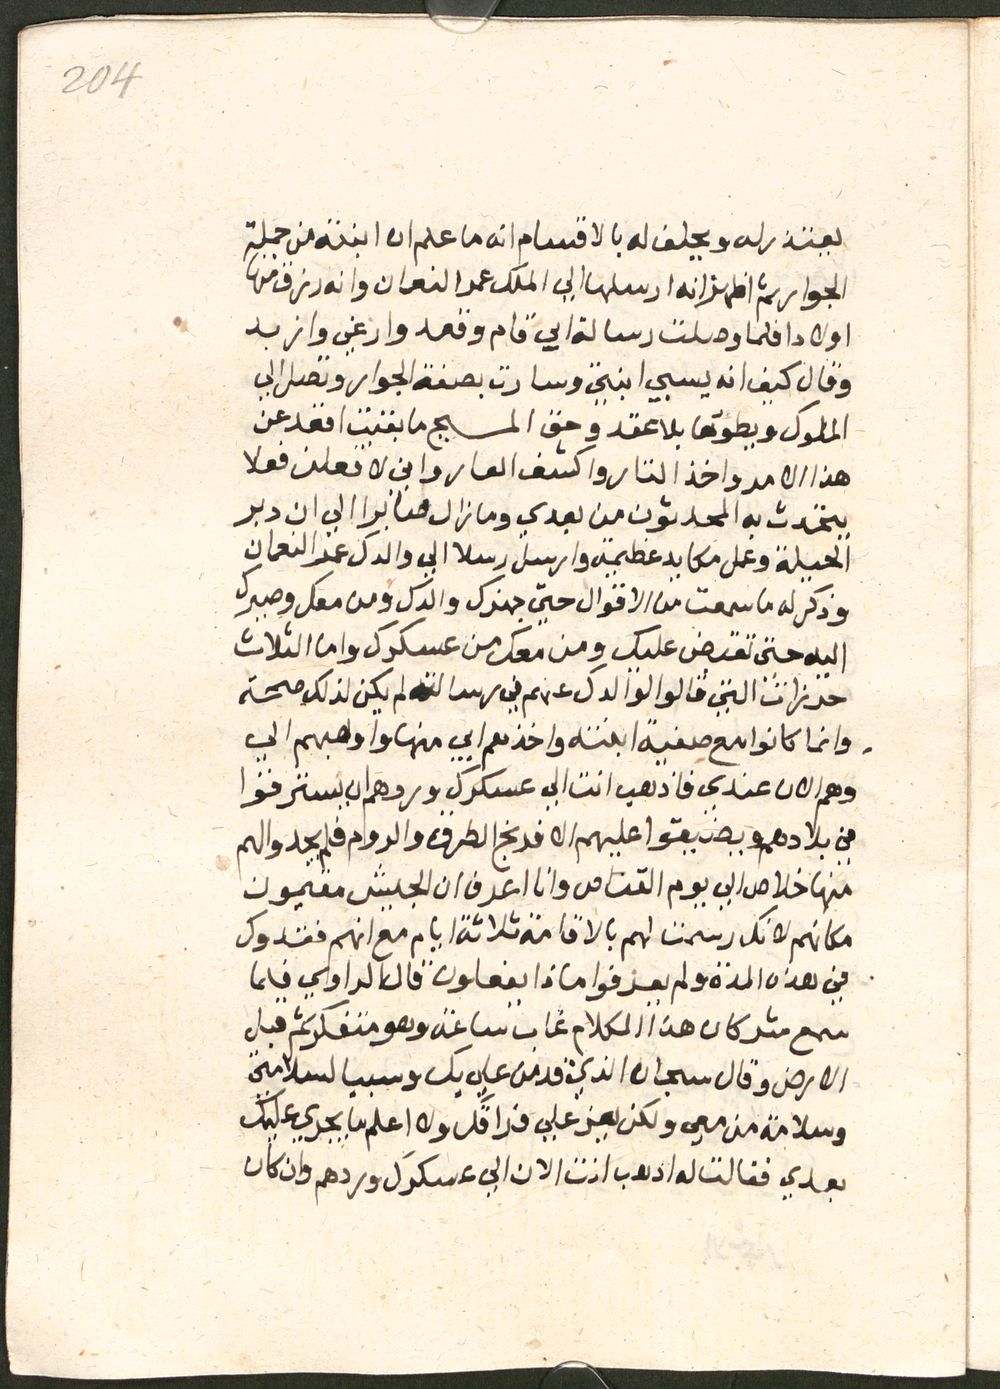 204
يعتذر له ويحلف له بالاقسام انه ما علم ان ابنته من جملة
الجوار ثم اظهر انه ارسلها الي الملك عمر النعمان وانه رزق منها
اولادا فلما وصلت رسالة ابي قام وقعد وارغي وازبد
وقال كيف انه يسبي ابنتي وسارت بصفة الجوار وتصل الي
الملوك ويطوها بلا عقد وحق المسيح ما بقيت اقعد عن
هذا الامر واخذ التار واكشف العار واني لا فعلن فعلا
يتحدث به المحدثون من بعدي وما زال صابرا الي ان دبر
الحيلة وعمل مكايد عظيمة وارسل رسلا الي والدك عمر النعمان
وذكر له ما سمعت من الاقوال حتي جهزك والدك ومن معك وصيرك
اليه حتي تقبض عليك ومن معك من عسكرك واما الثلاث
خرزات التي قالوا لوالدك عنهم في رسالته لم يكن لذلك صحة
وانما كانوا مع صفية ابنته واخذهم ابي منها واوهبهم الي
وهم الان عندي فاذهب انت الي عسكرك وردهم ان يستزقوا
في بلادهم ويضيقوا عليهم الافرنج الطرق والروم فلم يجدوا لهم
منها خلاص الي يوم القصاص وانا اعرف ان الجيش مقيمون
مكانهم لانك رسمت لهم بالاقامة ثلاثة ايام مع انهم فقدوك
في هذه المدة ولم يعرفوا ماذا يفعلون قال الراوي فلما
سمع شركان هذا الكلام غاب ساعة وهو متفكر ثم قبل
الارض وقال سبحان الذي قد من علي بك وسببا لسلامتي
وسلامة من معي ولكن يعز علي فراقك ولا اعلم ما يجري عليك
بعدي فقالت له اذهب انت الان الي عسكرك وردهم وان كان